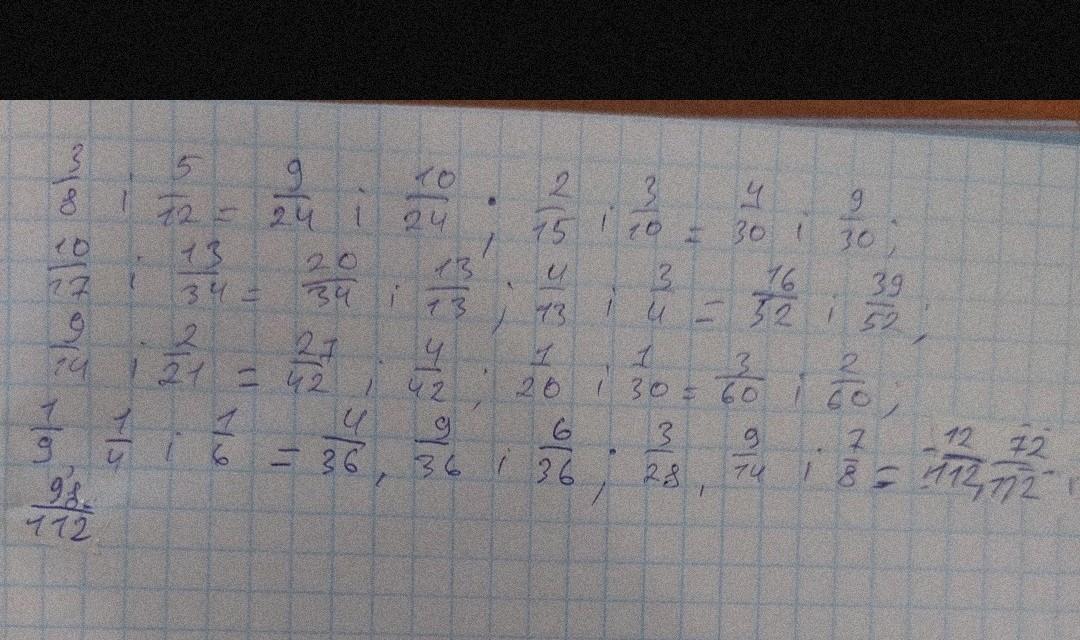 3/8 і 5/12 = 9/24 і 10/24; 2/15 і 3/10 = 4/30 і 9/30;
10/17 і 13/34 = 20/34 і 13/13; 4/13 і 3/4 = 16/52 і 39/52;
9/14 і 2/21 = 27/42 і 4/42; 1/20 і 1/30 = 3/60 і 2/60;
1/9, 1/4 і 1/6 = 4/36, 9/36 і 6/36; 3/28, 9/14 і 7/8 = 12/112, 72/112 і
98/112